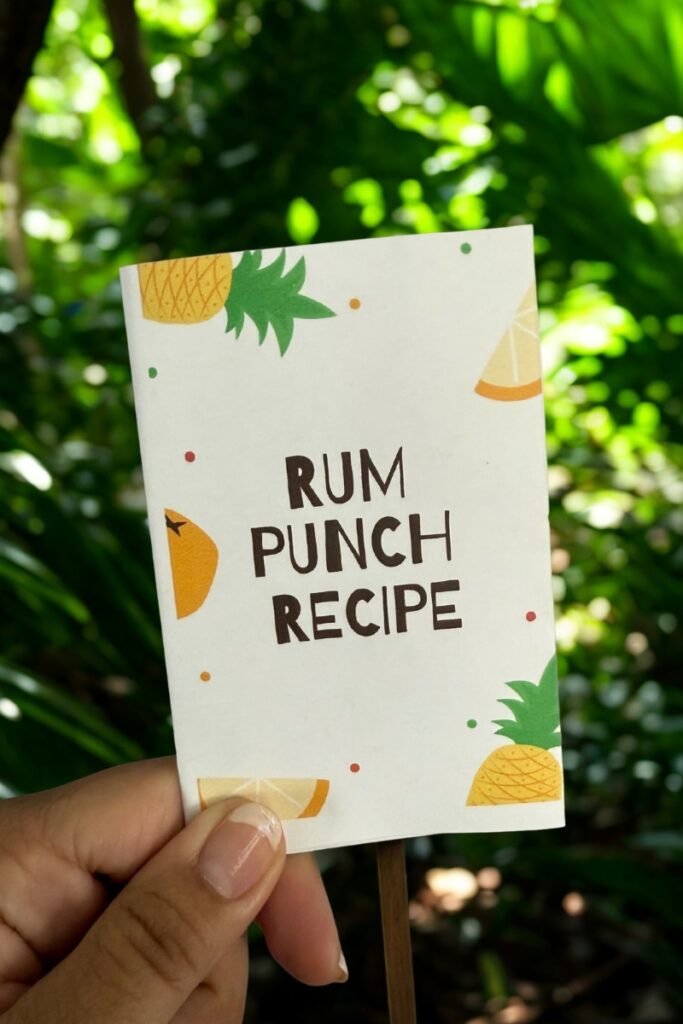 RUM
PUNCH
RECIPE